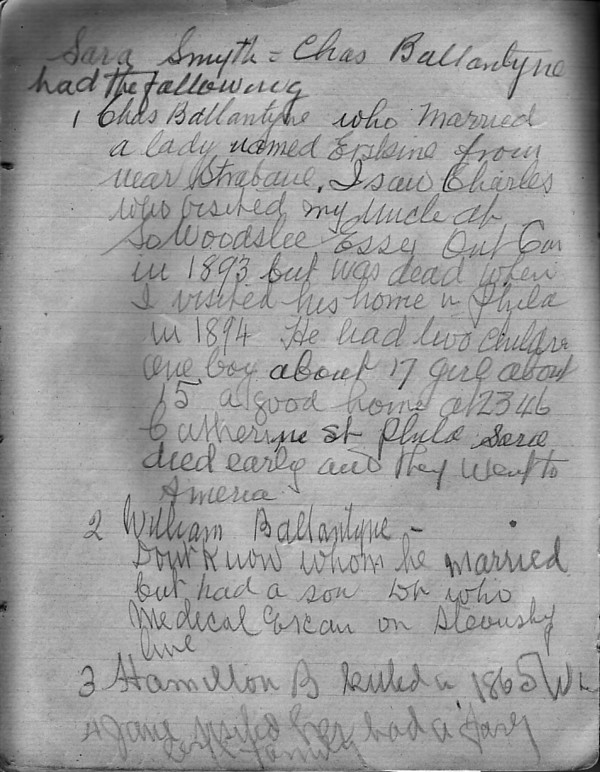 Sara Smyth = Chas Ballantyne
had the following
1 Chas Ballantyne who married
a lady named Erskine from
near Strabane. I saw Charles
who visited my Uncle at
So Woodslee Essex Ont Can
in 1893 but was dead when
I visited his home in Phila
in 1894 He had two children
one boy about 17 girl about
15 a good home at 2346
Catherine st Phila Sara
died early and they went to
America
2 William Ballantyne -
Dont know whom he married
but had a son Dr who
Medical on
line
3 Hamilton B killed in 1865
4 Jane had a
family